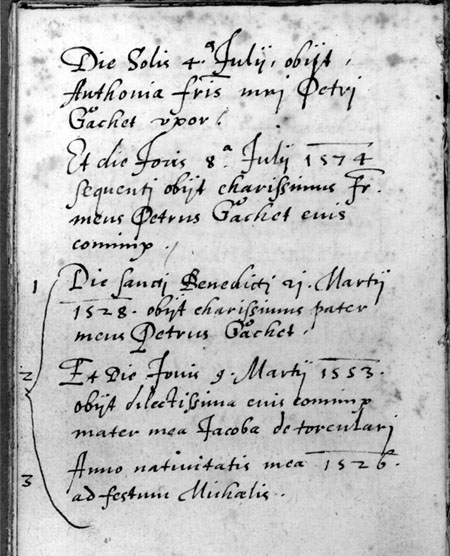 Die Solis 4.ª Julij, obijt,
Anthonia fr̃is mr̃i Petri
Gachet vxor.
Et die Jovis 8.ª Julij 1574
sequenti obijt charissimus Fr.
meus Petrus Gachet cuis
coniunx.
1 Die sancti Benedicti 21. Martij
1528. obijt charissimus pater
meus Petrus Gachet.
2 Et Die Jovis 9. Martij 1553.
obijt dilectissima euis coniunx
mater mea Jacoba de torculari
3 Anno nativitatis mea 1526.
ad festum Michaelis.